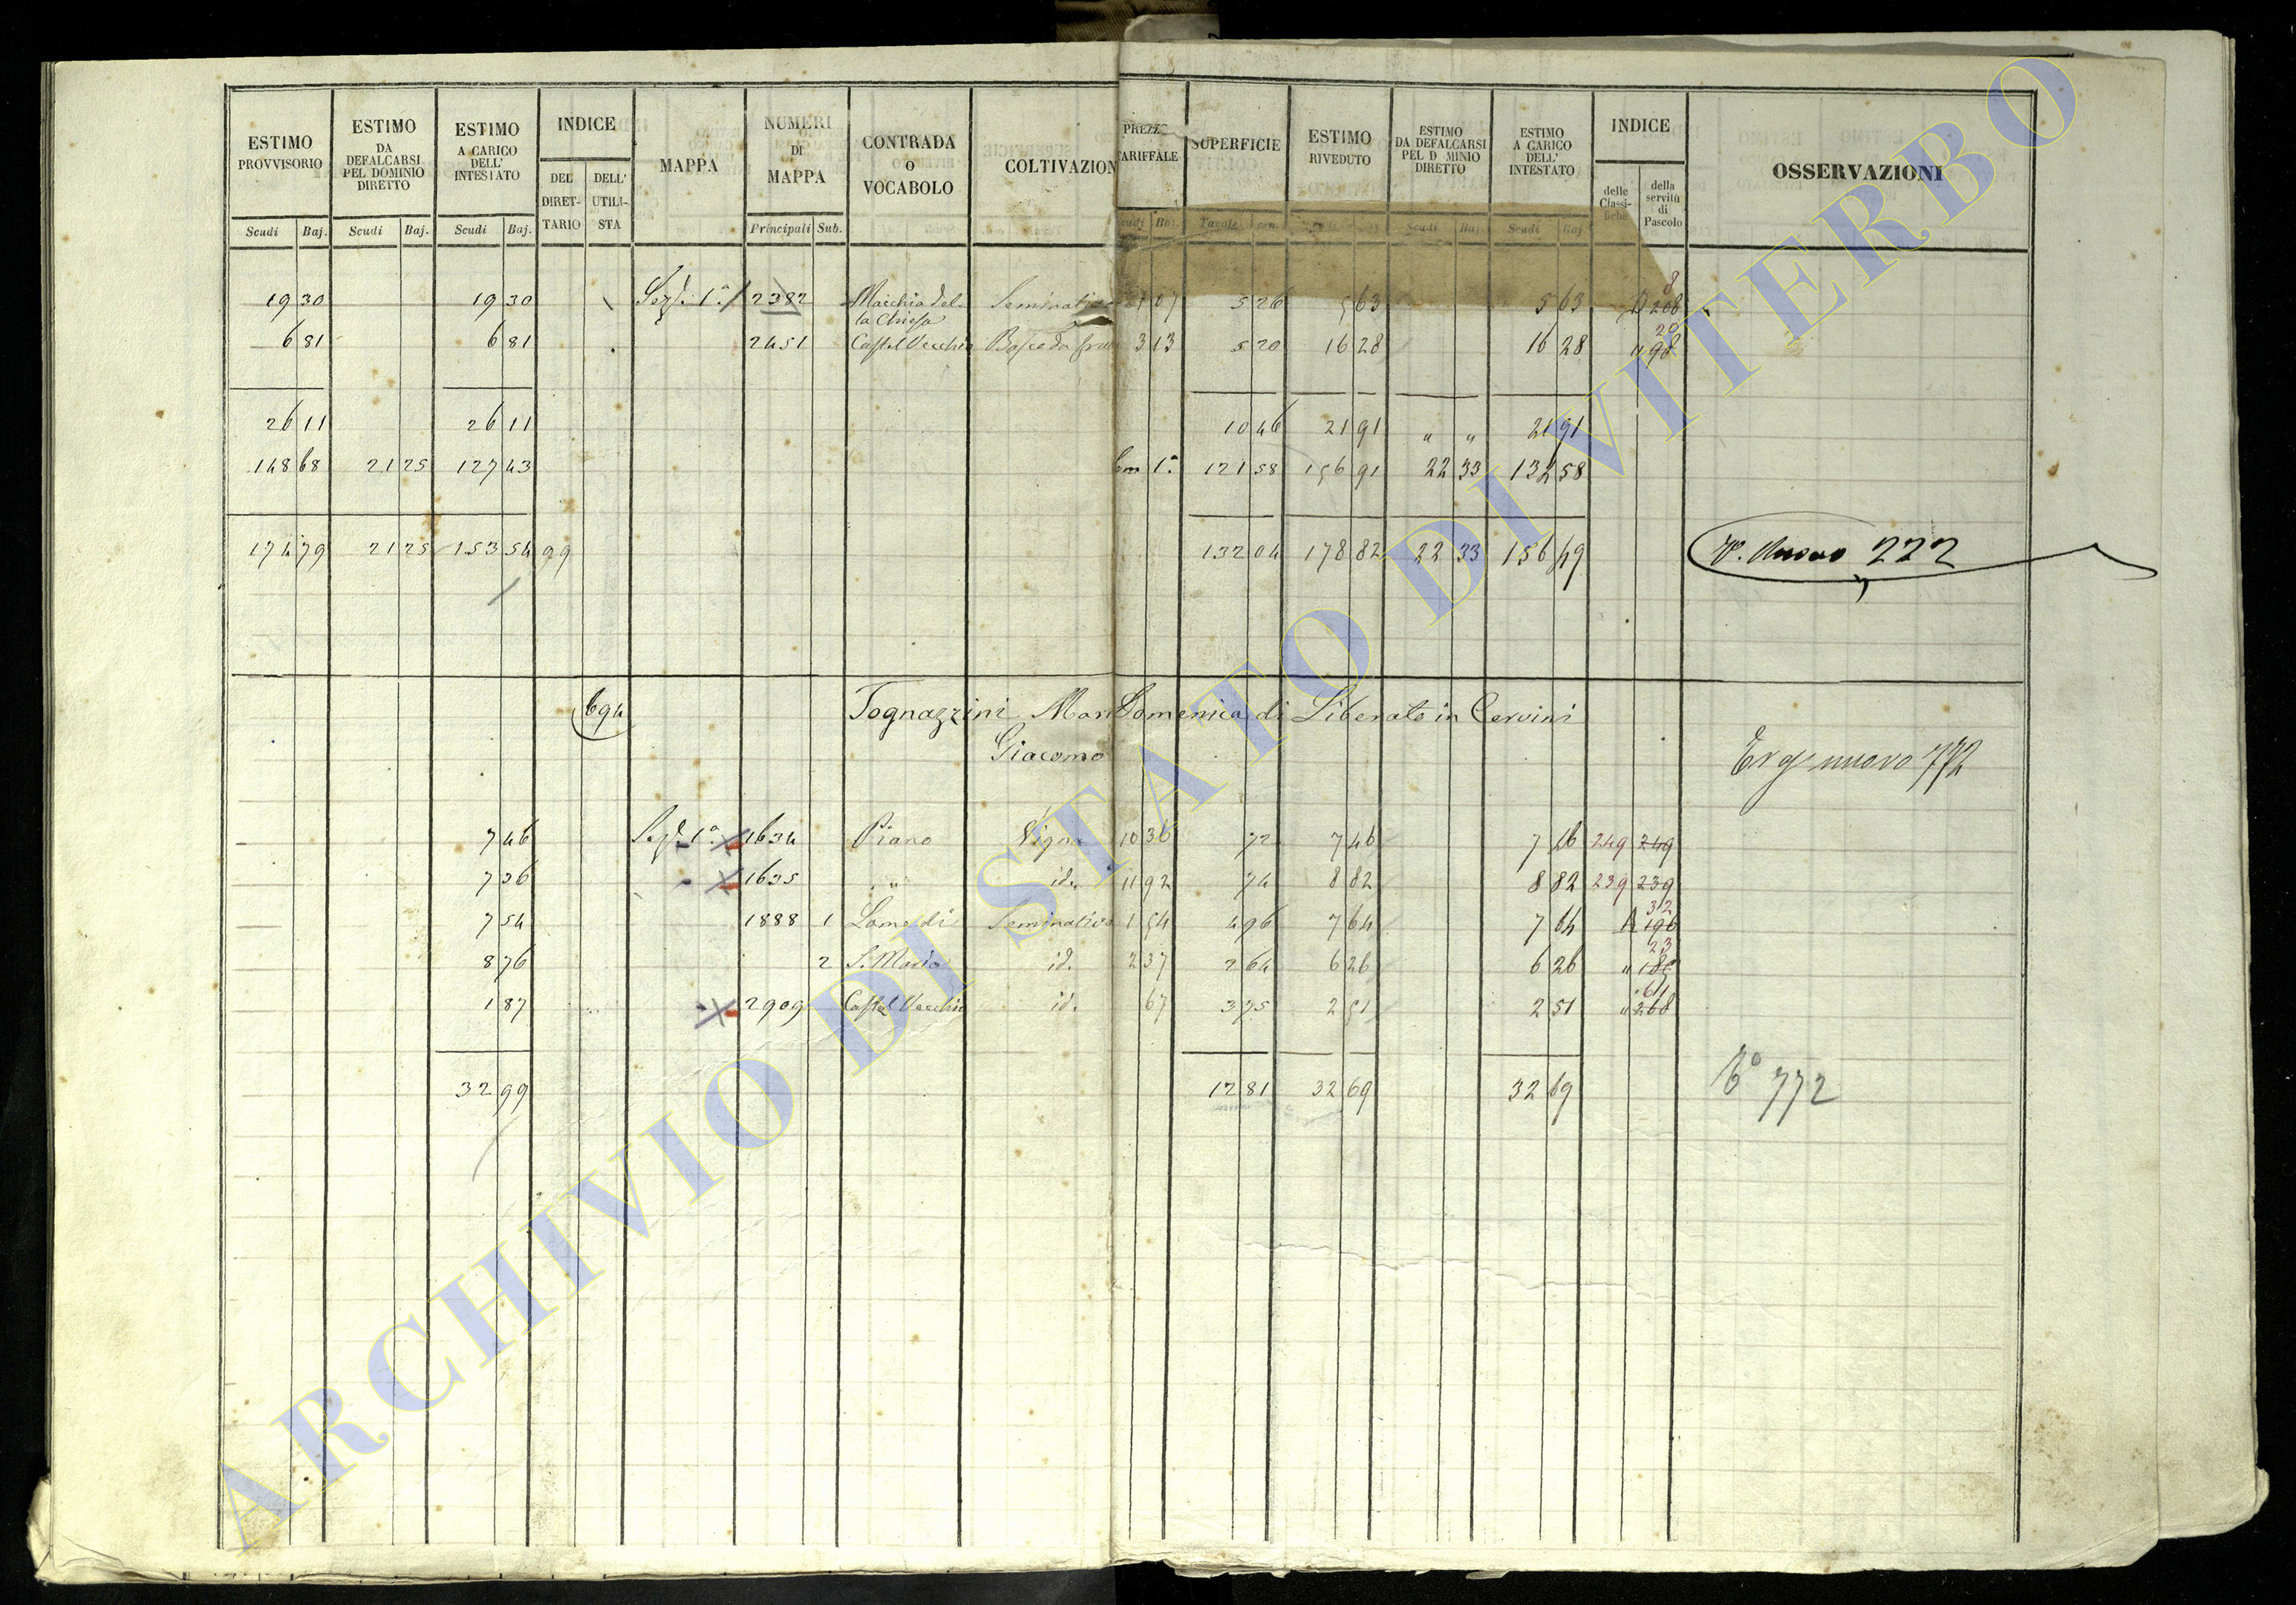 ESTIMO PROVVISORIO ESTIMO DA DEFALCARSI PEL DOMINIO DIRETTO ESTIMO A CARICO DELL' INTESTATO INDICE DEL DIRET-TARIO DELL' UTILI-STA MAPPA NUMERI DI MAPPA CONTRADA O VOCABOLO COLTIVAZION PREZZ TARIFFALE SUPERFICIE ESTIMO RIVEDUTO ESTIMO DA DEFALCARSI PEL D MINIO DIRETTO ESTIMO A CARICO DELL' INTESTATO INDICE delle Classi-fiche della servitù di Pascolo OSSERVAZIONI
Scudi Baj. Scudi Baj. Scudi Baj. Principali Sub. Scudi Baj. Tavole cen. Scudi Baj. Scudi Baj
19 30 19 30 Sez. 1a 2382 Macchia del 07 5 26 5 63 5 63 208 8
la Chiesa Seminativo
6 81 6 81 2451 Castel Vecchio Bosco da frutto 3 13 5 20 16 28 16 28 " 98 20
26 11 26 11 10 46 21 91 " " 21 91
148 68 21 25 127 43 1a 121 58 156 91 22 33 132 58
174 79 21 25 153 54 99 132 04 178 82 22 33 156 49 V. Nuovo 222
694 Tognazzini Mari Domenica di Liberato in Cervini
Giacomo
nuovo 772
7 46 Sez. 1a 1634 Piano Vigna 10 36 72 7 46 7 46 249 249
7 36 1635 " id. 11 92 74 8 82 8 82 239 239
7 54 1888 1 Lame di Seminativo 1 54 4 96 7 64 7 64 A 196 32
8 76 2 S. Maria id. 2 37 2 64 6 26 6 26 " 23
1 87 2909 Castel Vecchio id. 67 3 75 2 51 2 51 " 268 61
32 99 12 81 32 69 32 69 772
ARCHIVIO DI STATO DI VITERBO